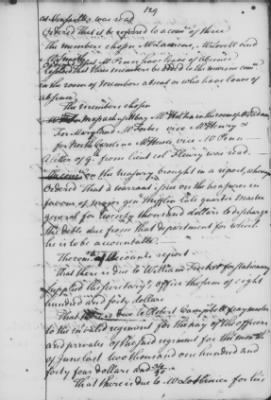 129
was read
Ordered that it be referred to a com^ee of three
the members chosen Mr Laurens, Mr Lovell and
Mr
that three members be added to the marine com^ee
in the room of members absent or who have leave of
absence
The members chosen
For Maryland Mr Forbes vice Mr Henry &
for North Carolina Mr Hewes vice Mr Penn
A letter of 9. from lieut col Fleury was read.
The com^ee on the treasury brought in a report, whereupon
Ordered That a warrant issue on the treasurer in
favour of major gen Mifflin late quarter master
general for twenty thousand dollars to discharge
the debts due from that department for which
he is to be accountable.
The com^ee of accounts report
That there is due to William Trickett for stationary
supplied the secretary's office the sum of eight
hundred and forty dollars
That there is due to Robert Campbell pay master
to the invalid regiment for the pay of the officers
and privates of the said regiment for the month
of June last two thousand one hundred and
forty four dollars and
That there is due to for his